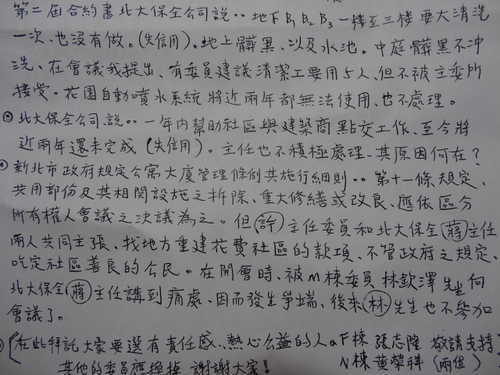 第二屆合約書北大保全公司說：地下B1、B2、B3一樓至三樓要大清洗
一次、也沒有做。(失信用)。地上髒黑、以及水池。中庭髒黑不沖
洗、在會議我提出、有委員建議清潔工要用5人、但不被主委所
接受。花園自動噴水系統將近兩年都無法使用、也不處理。
北大保全公司、說：一年內幫助社區與建築商點交工作、至今將
近兩年還未完成(失信用)。主任也不積極處理、其原因何在？
新北市政府規定公寓大廈管理條例共施行細則：第十一條規定、
共用部份及其相關設施之拆除、重大修繕或改良、應依區分
所有權人會議之決議為之。但許主任委員和北大保全蔣主任
兩人共同主張、找地方重建花費社區的款項、不管政府之規定、
吃定社區善良的公民。在開會時、被M棟委員林欽澤先生向
北大保全蔣主任講到痛處、因而發生爭端、後來林先生也不參加
會議了。
在此拜託大家要選有責任感、熱心公益的人。F棟 張志隆 敬請支持
其他的委員應換掉 謝謝大家！ N棟 黃榮 (兩位)